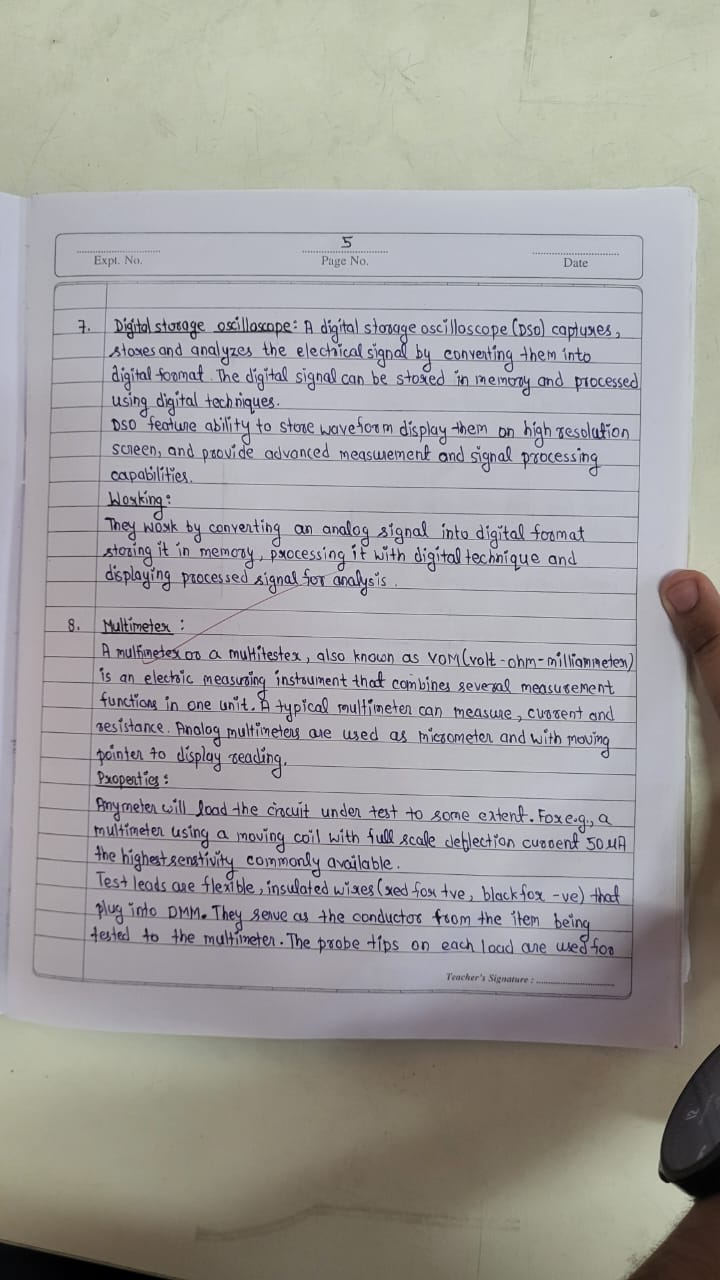 5
Expt. No.
Page No.
Date
7. Digital storage oscilloscope: A digital storage oscilloscope (DSO) captures,
stores and analyzes the electrical signal by converting them into
digital format. The digital signal can be stored in memory and processed
using digital techniques.
DSO feature ability to store waveform display them on high resolution
screen, and provide advanced measurement and signal processing
capabilities.
Working:
They work by converting an analog signal into digital format
storing it in memory, processing it with digital technique and
displaying processed signal for analysis.
8. Multimeter :
A multimeter or a multitester, also known as VOM (volt-ohm-milliammeter)
is an electric measuring instrument that combines several measurement
functions in one unit. A typical multimeter can measure, current and
resistance. Analog multimeters are used as micrometer and with moving
pointer to display reading.
Properties:
Any meter will load the circuit under test to some extent. For e.g., a
multimeter using a moving coil with full scale deflection current 50 μA
the highest senstivity commonly available.
Test leads are flexible, insulated wires (red for +ve, black for -ve) that
plug into DMM. They serve as the conductor from the item being
tested to the multimeter. The probe tips on each lead are used for
Teacher's Signature :